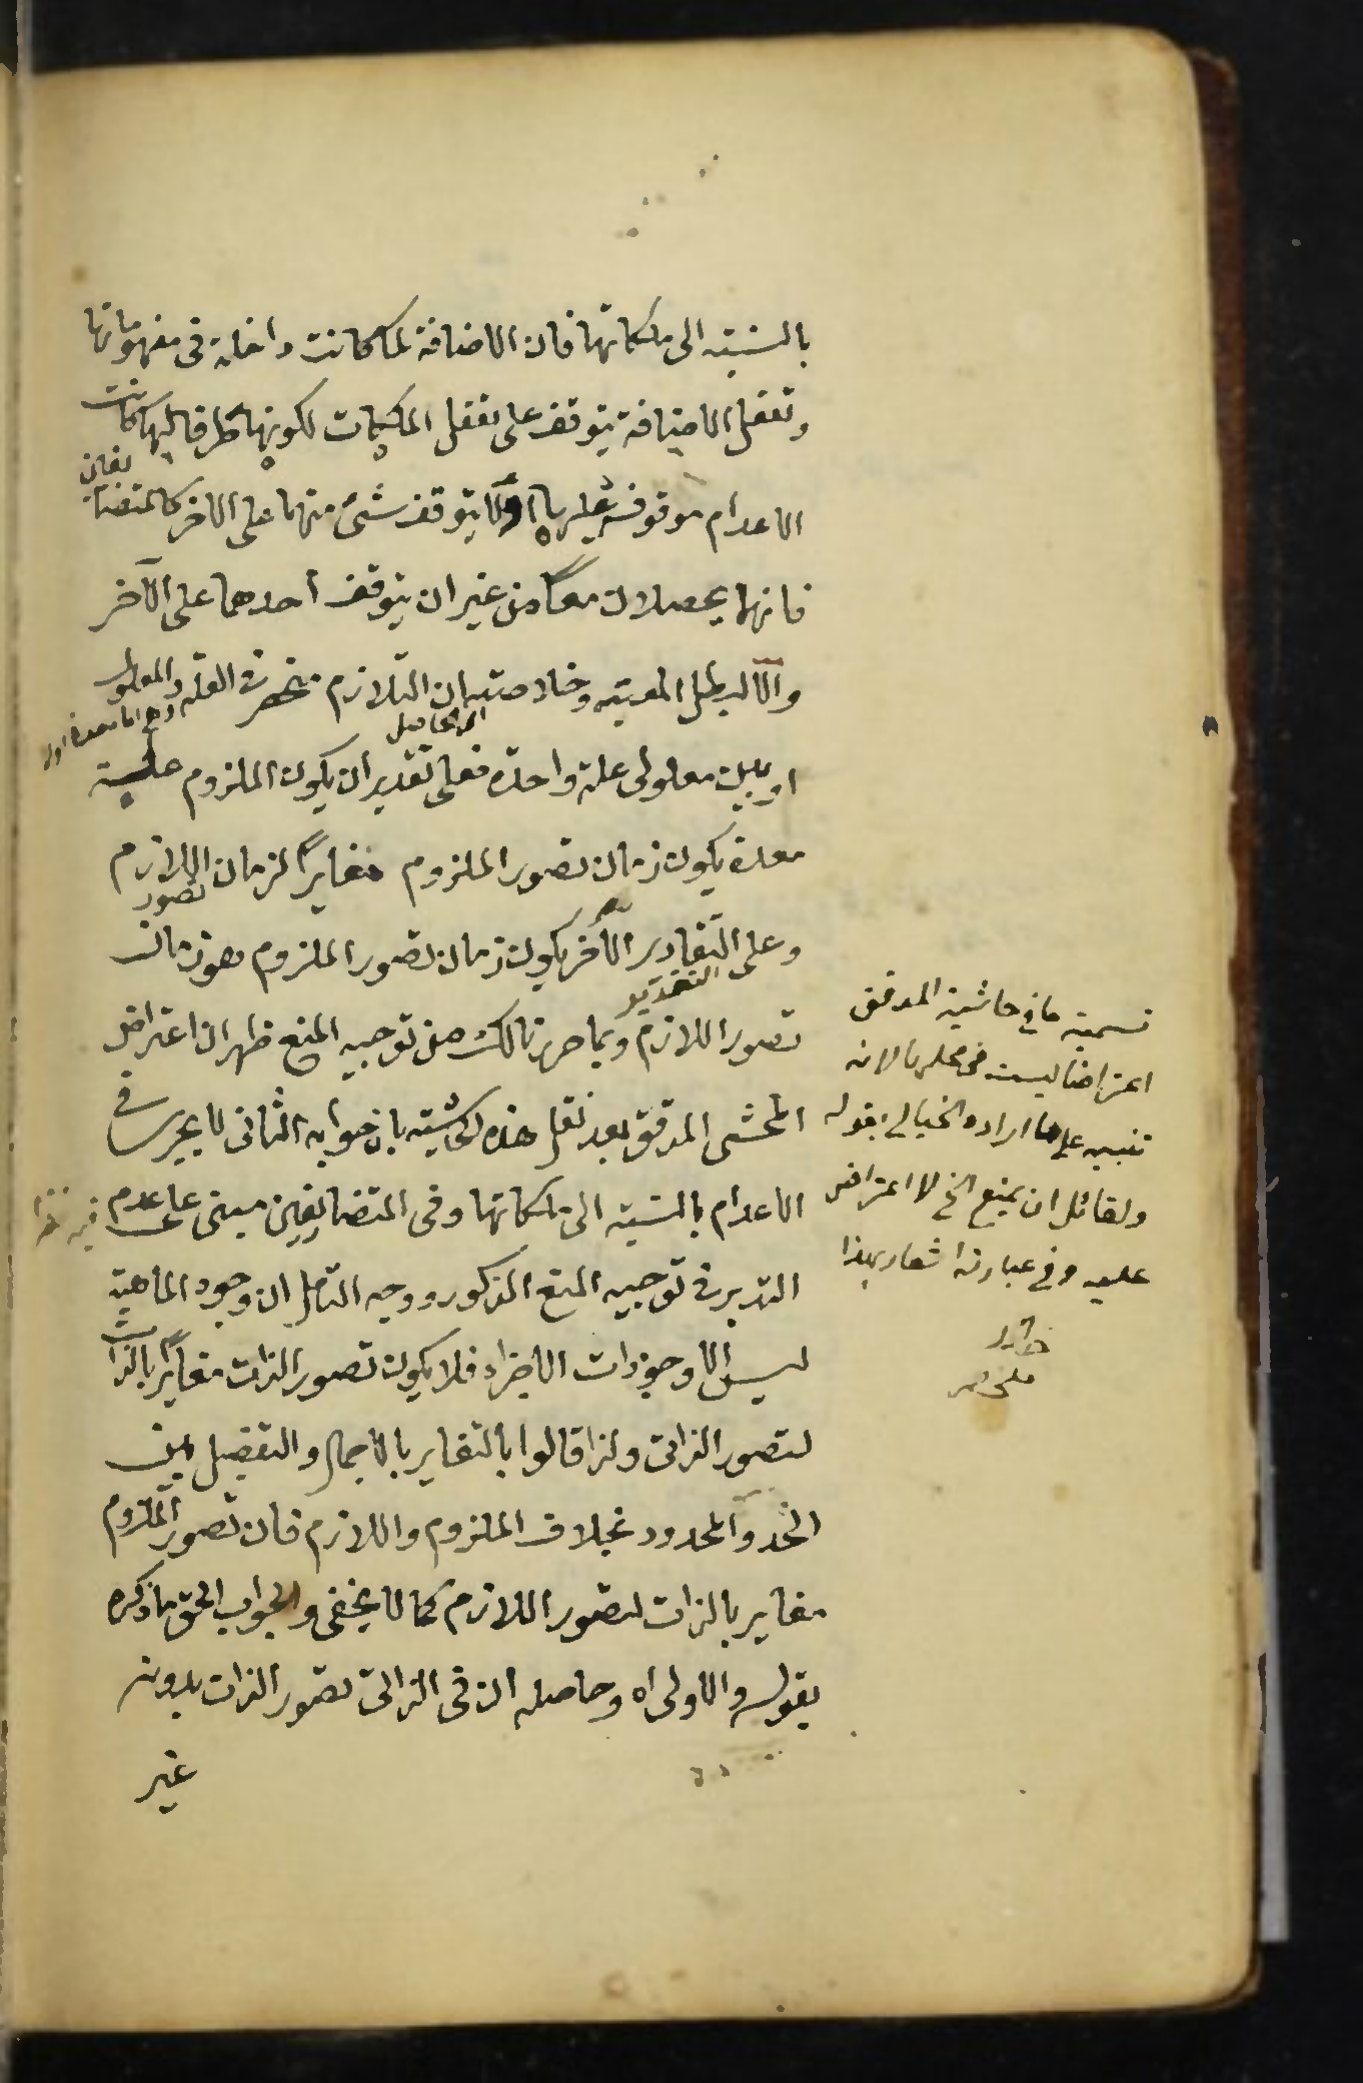 بالنسبة الى ملكاتها فان الاضافة لما كانت داخلة فى مفهوماتها
وتعقل الاضافة يتوقف على تعقل الملكات لكونها طرفا لها كانت
الاعدام موقوفة عليها او لا يتوقف شئ منهما على الاخر كالمتضايفين
فانهما يحصلان معاً من غير ان يتوقف احدهما على الآخر
والا لبطل المعية وخلاصته ان التلازم منحصر فى العلة والمعلول
الحاصل
او بين معلولى علة واحدة فعلى تقدير ان يكون الملزوم علة
معدة يكون زمان تصور الملزوم مغايراً لزمان اللازم
تصور
وعلى التقادير الآخر يكون زمان تصور الملزوم هو زمان
التقدير
تصور اللازم وبما حررنا لك من توجيه المنع ظهر ان اعتراض
المحشى المدقق بعد نقل هذه الحاشية بان جوابه الثانى لا يجرى فى
الاعدام بالنسبة الى ملكاتها وفى المتضايفين مبنى على عدم
التدبر فى توجيه المنع المذكور ووجه التامل ان وجود الماهية
ليس الا وجودات الاجزاء فلا يكون تصور الذات مغايراً بالذات
لتصور الذاتى ولذا قالوا بالتغاير بالاجمال والتفصيل بين
الحد والمحدود بخلاف الملزوم واللازم فان تصور الملزوم
مغاير بالذات لتصور اللازم كما لا يخفى والجواب الحق ما ذكره
بقوله والاولى اه وحاصله ان فى الذاتى تصور الذات بدونه
غير
تسمية ما فى حاشية المدقق
اعتراضا ليست فى محلها لانه
تنبيه على ما اراده الخيالى بقوله
ولقائل ان يمنع الخ لا اعتراض
عليه وفى عبارته اشعار بهذا
فيه نظر